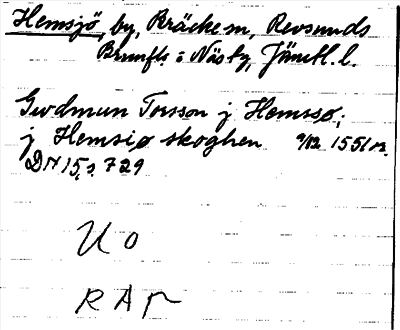 Hemsjö, by, Bräcke sn, Revsunds
Brunflo o Näs tg, Jämtl. l.
Gudmun Torsson j Hemssø,
j Hemsiø skoghen 9/12 1551
DN 15, s. 729
U o
R A P